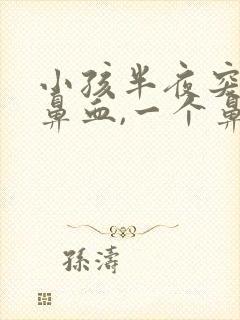 小孩半夜突
鼻血,一个鼻
孫濤